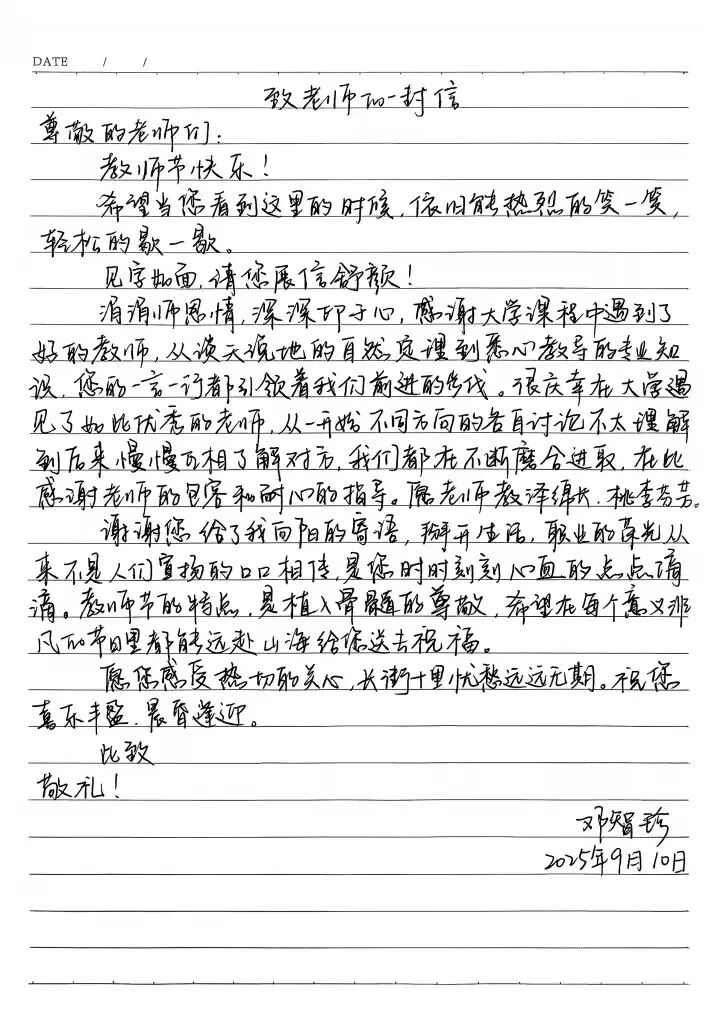 DATE / /
致老师的一封信
尊敬的老师们：
教师节快乐！
希望当您看到这里的时候，依旧能热烈的笑一笑，
轻松的歇一歇。
见字如面，请您展信舒颜！
涓涓师恩情，深深印于心，感谢大学课程中遇到了
好的教师，从谈天说地的自然定理到悉心教导的专业知
识，您的一言一行都引领着我们前进的步伐。很庆幸在大学遇
见了如此优秀的老师，从一开始不同方向的各自讨论不太理解
到后来慢慢互相了解对方，我们都在不断磨合进取，在此
感谢老师的包容和耐心的指导。愿老师教泽绵长，桃李芬芳。
谢谢您给了我向阳的寄语，掰开生活，职业的荣光从
来不是人们宣扬的口口相传，是您时时刻刻心血的点点滴
滴。教师节的特点，是植入骨髓的尊敬，希望在每个意义非
凡的节日里都能远赴山海给您送去祝福。
愿您感受热切的关心，长街十里忧愁远远无期。祝您
喜乐丰盈，晨昏逢迎。
此致
敬礼！
邓智珍
2025年9月10日